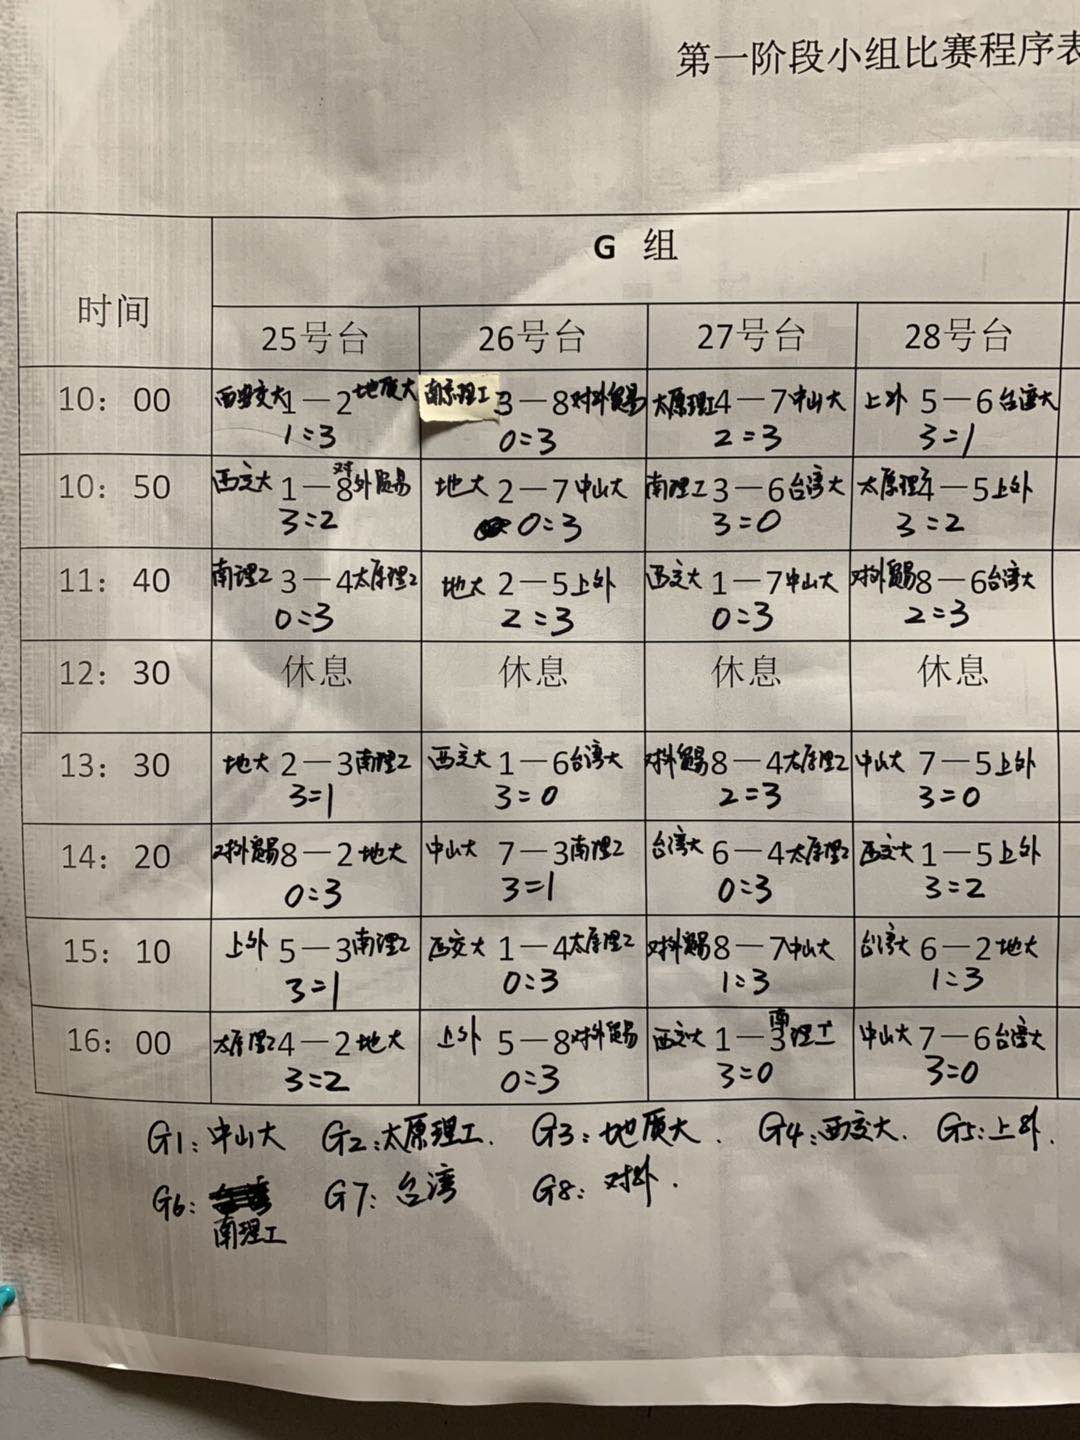 第一阶段小组比赛程序表
时间
G 组
25号台 26号台 27号台 28号台
10：00 西安交大1—2地质大 南京理工3—8对外贸易 太原理工4—7中山大 上外 5—6台湾大
1=3 0=3 2=3 3=1
10：50 西交大 1—8对外贸易 地大 2—7中山大 南理工3—6台湾大 太原理工4—5上外
3=2 0=3 3=0 3=2
11：40 南理工 3—4太原理工 地大 2—5上外 西交大 1—7中山大 对外贸易8—6台湾大
0=3 2=3 0=3 2=3
12：30 休息 休息 休息 休息
13：30 地大 2—3南理工 西交大 1—6台湾大 对外贸易8—4太原理工 中山大 7—5上外
3=1 3=0 2=3 3=0
14：20 对外贸易8—2地大 中山大 7—3南理工 台湾大 6—4太原理工 西交大 1—5上外
0=3 3=1 0=3 3=2
15：10 上外 5—3南理工 西交大 1—4太原理工 对外贸易8—7中山大 台湾大 6—2地大
3=1 0=3 1=3 1=3
16：00 太原理工4—2地大 上外 5—8对外贸易 西交大 1—3南理工 中山大 7—6台湾大
3=2 0=3 3=0 3=0
G1：中山大 G2：太原理工. G3：地质大. G4：西交大. G5：上外.
G6： G7：台湾 G8：对外.
南理工